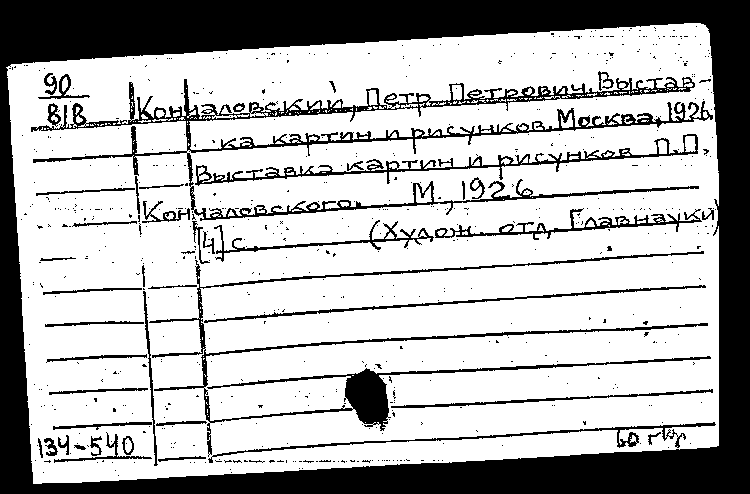 90
818
Кончаловский, Петр Петрович. Выстав-
ка картин и рисунков. Москва, 1926.
Выставка картин и рисунков П.П.
Кончаловского. М., 1926
[4] с. (Худож. отд. Главнауки)
134-540